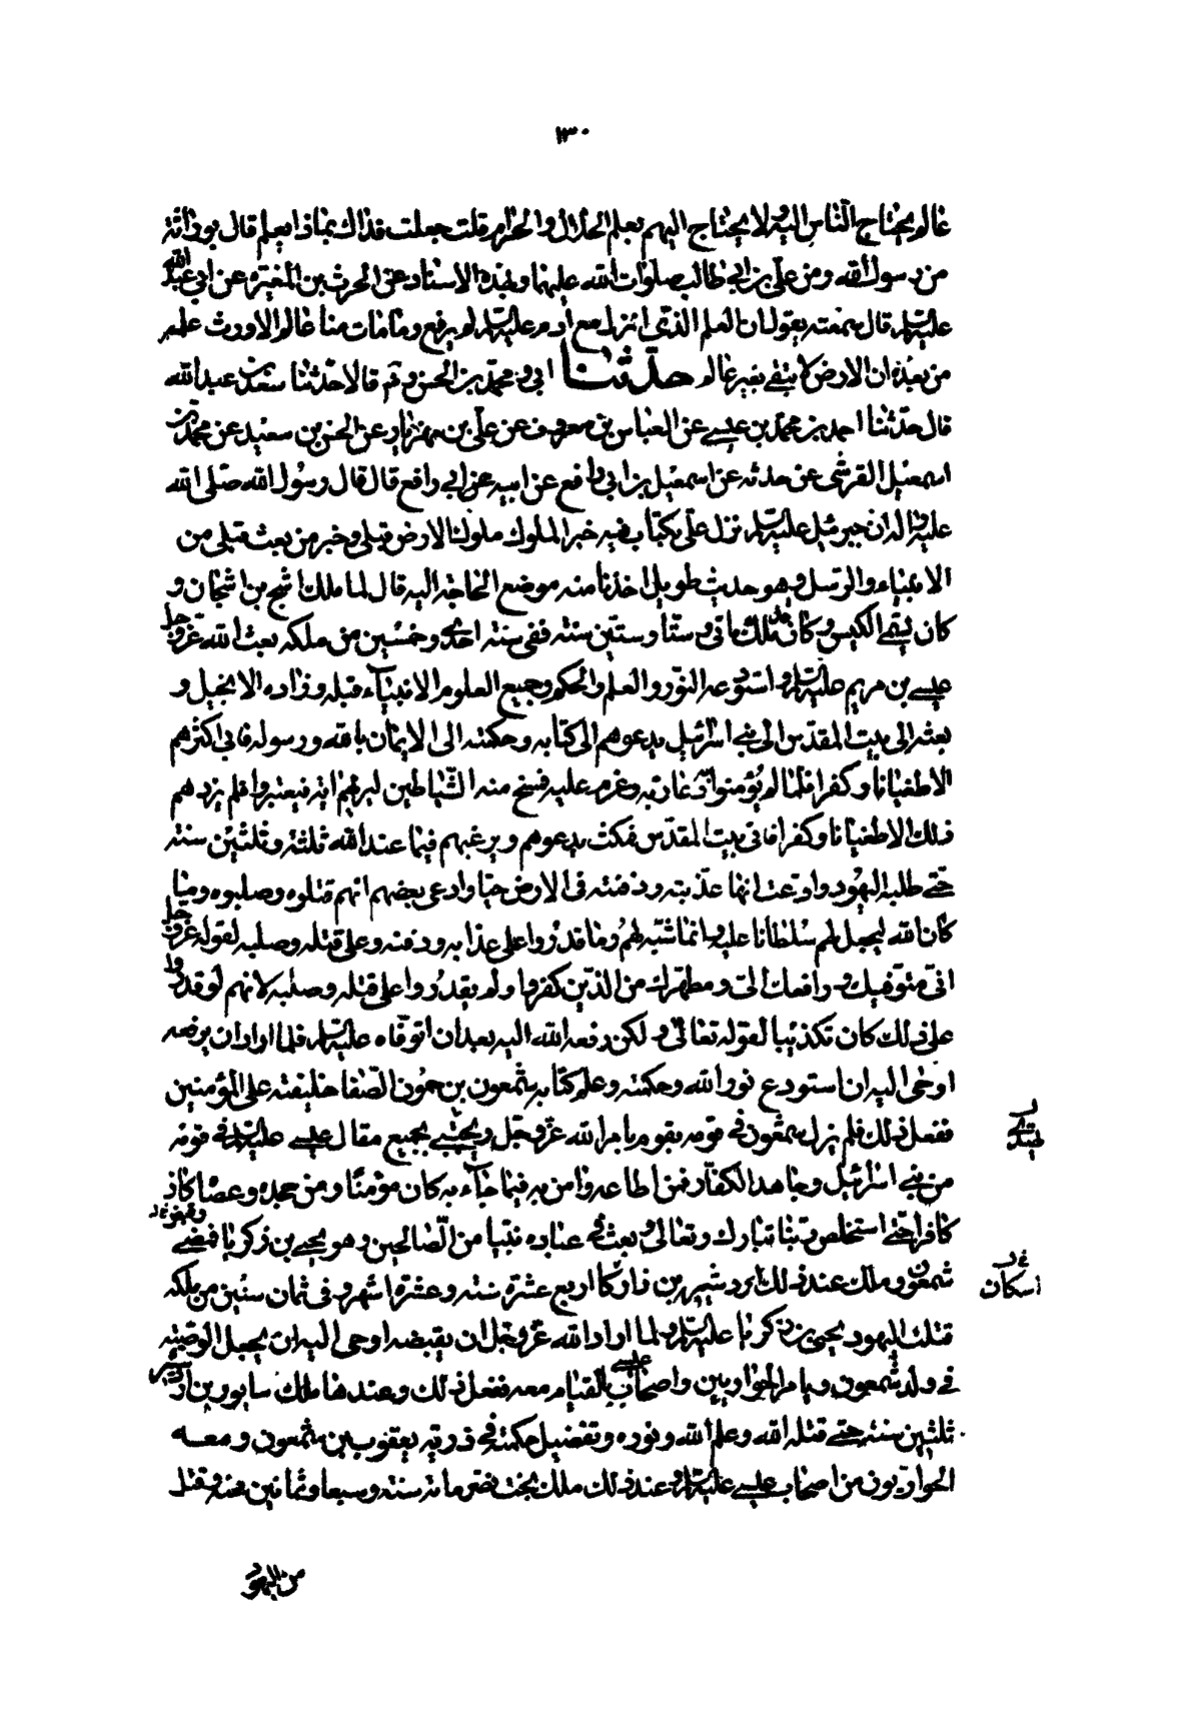 ١٣٠
عالم يحتاج الناس اليه ولا يحتاج اليهم يعلم الحلال والحرام قلت جعلت فداك بماذا يعلم قال بوراثة
من رسول الله ومن علي بن ابي طالب صلوات الله عليهما وبهذا الاسناد عن الحرث بن المغيرة عن ابي عبد الله
عليه السلام قال سمعته يقول ان العلم الذي انزل مع آدم عليه السلام لم يرفع وما مات منا عالم الا ورث علمه
من بعده ان الارض لا يبقى بغير عالم حدثنا ابي ومحمد بن الحسن ره قالا حدثنا سعد بن عبد الله
قال حدثنا احمد بن محمد بن عيسى عن العباس بن معروف عن علي بن مهزيار عن الحسن بن سعيد عن محمد بن
اسمعيل القرشي عن حدثه عن اسمعيل بن ابي رافع عن ابيه عن ابي رافع قال قال رسول الله صلى الله
عليه واله ان جبرئيل عليه السلام نزل علي بكتاب فيه خبر الملوك ملوك الارض قبلي وخبر من بعث قبلي من
الانبياء والرسل وهو حديث طويل اخذنا منه موضع الحاجة اليه قال لما ملك اشج بن اشجان و
كان يسمى الكيس وكان قد ملك مأتي وستا وستين سنة ففي سنة احدى وخمسين من ملكه بعث الله عز وجل
عيسى بن مريم عليه السلام واستودعه النور والعلم والحكم وجميع العلوم الانبياء قبله وزاده الانجيل و
بعثه الى بيت المقدس الى بني اسرائيل يدعوهم الى كتابه وحكمته الى الايمان بالله ورسوله فابى اكثرهم
الا طغيانا وكفرا فلما لم يؤمنوا به دعا ربه وعزم عليه فمسخ منه الشياطين ليريهم اية فيعتبروا فلم يزدهم
ذلك الا طغيانا وكفرا فاتى بيت المقدس فمكث يدعوهم ويرغبهم فيما عند الله ثلثة وثلثين سنة
حتى طلبه اليهود وادعت انها عذبته ودفنته في الارض حيا وادعى بعضهم انهم قتلوه وصلبوه وما
كان الله ليجعل لهم سلطانا عليه وانما شبه لهم وما قدروا على عذابه ودفنه وعلى قتله وصلبه لقوله عز وجل
اني متوفيك ورافعك الي ومطهرك من الذين كفروا ولم يقدروا على قتله وصلبه لانهم لو قدروا
على ذلك كان تكذيبا لقوله تعالى ولكن رفعه الله اليه بعد ان توفاه عليه السلام فلما اراد ان يرفعه
اوحى اليه ان استودع نور الله وحكمته وعلم كتابه شمعون بن حمون الصفا خليفته على المؤمنين
ففعل ذلك فلم يزل شمعون في قومه يقوم بامر الله عز وجل ويحتبي بجميع مقال عيسى عليه السلام في قومه
من بني اسرائيل وجاهد الكفار فمن اطاعه وامن به فيما جاء به كان مؤمنا ومن جحده وعصاه كان
كافرا حتى استخلص ربنا تبارك وتعالى وبعث في عباده نبيا من الصالحين وهو يحيى بن زكريا فمضى
شمعون وملك عند ذلك اردشير بن زاركا اربع عشرة سنة وعشرة اشهر وفي ثمان سنين من ملكه
اسكان
قتلت اليهود يحيى بن زكريا عليه السلام ولما اراد الله عز وجل ان يقبضه اوحى اليه ان يجعل الوصية
في ولد شمعون ويامر الحواريين واصحاب عيسى بالقيام معه ففعل ذلك وعندها ملك سابور بن اردشير
ثلثين سنة حتى قتله الله وعلم الله ونوره وتفضيل حكمته في ذرية يعقوب بن شمعون ومعه
الحواريون من اصحاب عيسى عليه السلام وعند ذلك ملك بخت نصر مائة سنة وسبعا وثمانين سنة وقتل
من اليهود